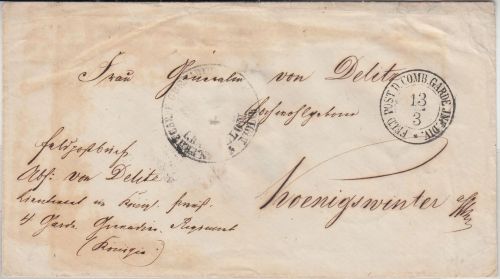 Frau Generalin von Delitz
FELD POST D. COMB. GARDE INF. DIV.
13
3
Hochwohlgeboren
Feldpostbrief
Abs: von Delitz
Lieutenant im
4 Garde Grenadier Regiment
(Königin)
Koenigswinter a/Rh